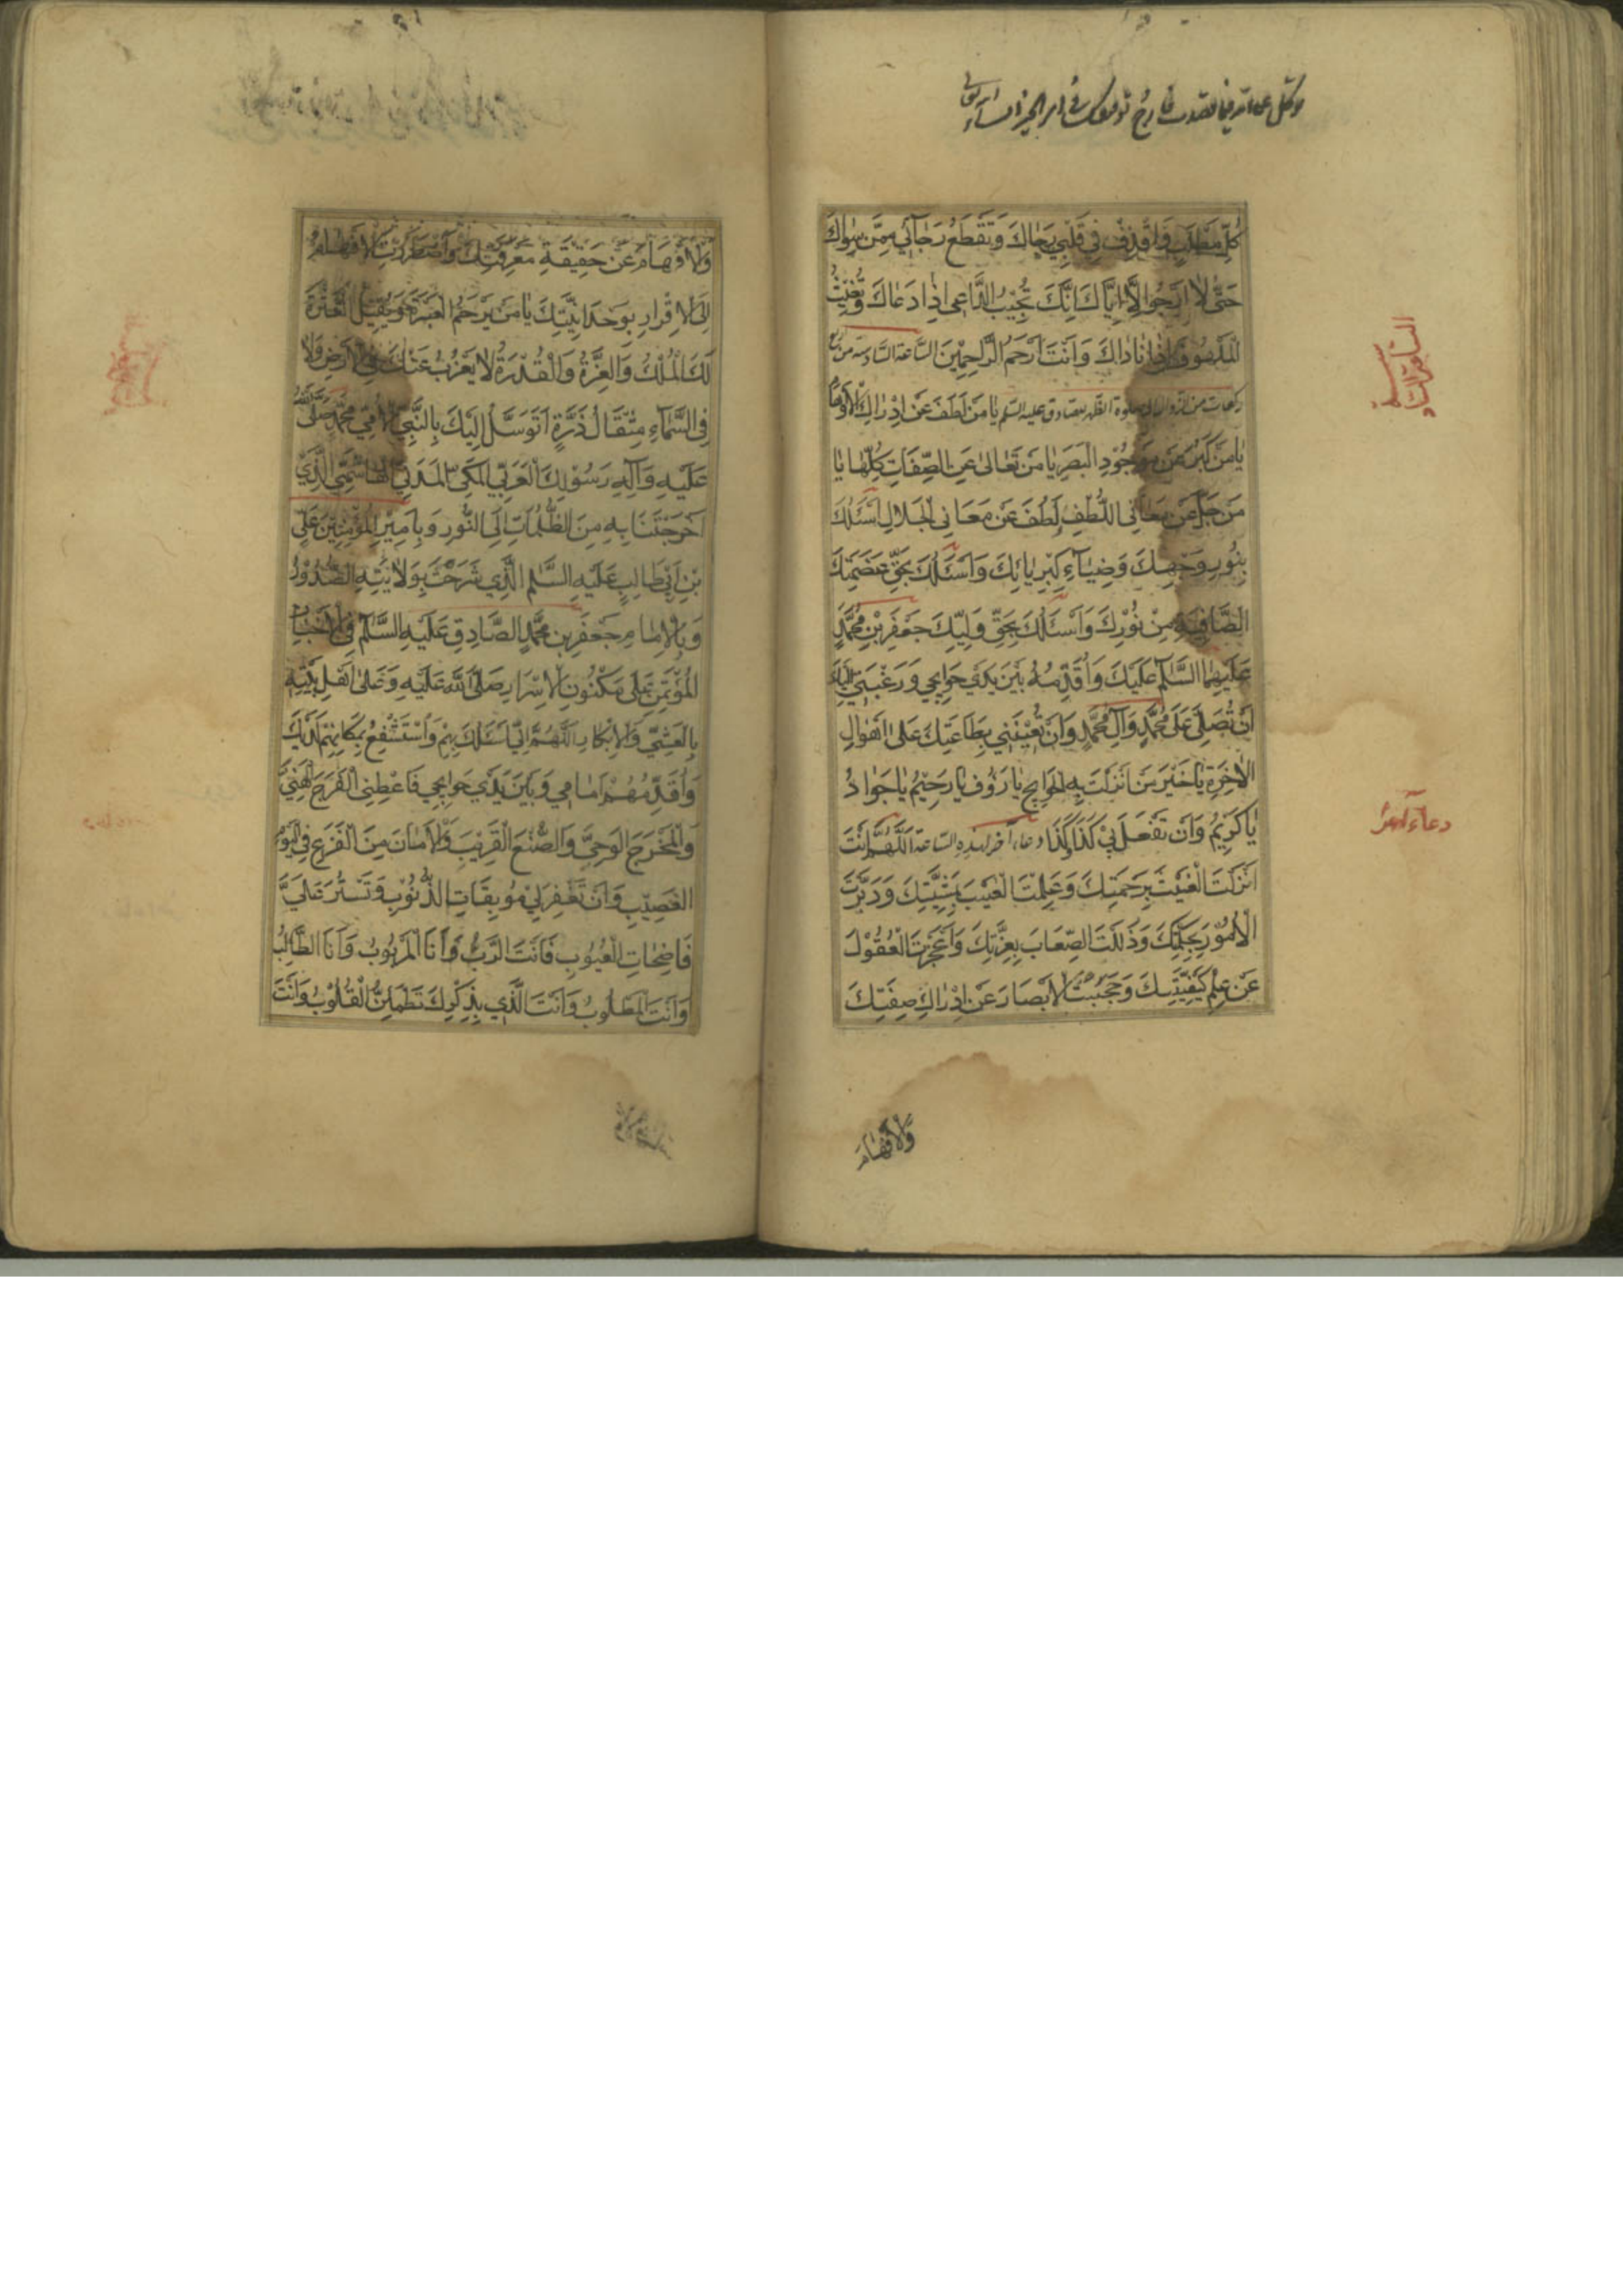 كُلِّ مَطْلَبٍ وَاقْذِفْ فِي قَلْبِي رَجَاكَ وَتَقْطَعُ رَجَآئِي مِمَّن سِوَاكَ
حَتّٰى لَا اَرْجُوا اِلَّا اِيَّاكَ اِنَّكَ تُجِيْبُ الدَّاعِي اِذَا دَعَاكَ وَتُغِيْثُ
الْمَلْهُوْفَ اِذَا نَادَاكَ وَاَنْتَ اَرْحَمُ الرَّاحِمِيْنَ السّاعة السّادسة من اربع
ركعات من الزوال الى صلوة الظّهر للصادق عليه السّلم يَا مَنْ لَطُفَ عَنْ اِدْرَاكِ الْاَوْهَامِ
يَا مَنْ كَبُرَ عَنْ مَوْجُوْدِ الْبَصَرِ يَا مَنْ تَعَالىٰ عَنِ الصِّفَاتِ كُلِّهَا يَا
مَنْ جَلَّ عَنْ مَعَانِي اللُّطْفِ وَلَطُفَ عَنْ مَعَانِي الْجَلَالِ اَسْئَلُكَ
بِنُوْرِ وَجْهِكَ وَضِيَآءِ كِبْرِيَائِكَ وَاَسْئَلُكَ بِحَقِّ عَضَمَتِكَ
الصَّافِيَةِ مِنْ نُوْرِكَ وَاَسْئَلُكَ بِحَقِّ وَلِيِّكَ جَعْفَرِ بْنِ مُحَمَّدٍ
عَلَيْهِمَا السَّلَامُ عَلَيْكَ وَاُقَدِّمُهُ بَيْنَ يَدَيْ حَوَايِجِي وَرَغْبَتِي اِلَيْكَ
اَنْ تُصَلِّيَ عَلىٰ مُحَمَّدٍ وَآلِ مُحَمَّدٍ وَاَنْ تُعِيْنَنِي بِطَاعَتِكَ عَلىٰ اَهْوَالِ
الْاٰخِرَةِ يَا خَيْرَ مَنْ اَنْزَلْتَ بِهِ الْحَوَايِجُ يَا رَؤُفُ يَا رَحِيْمُ يَا جَوَادُ
يَا كَرِيْمُ وَاَنْ تَفْعَلَ بِيْ كَذَا وَكَذَا دعاء آخر لهذه الساعة اَللّٰهُمَّ اَنْتَ
اَنْزَلْتَ الْغَيْثَ بِرَحْمَتِكَ وَعَلِمْتَ الْغَيْبَ بِمَشِيَّتِكَ وَدَبَّرْتَ
الْاُمُوْرَ بِحِكْمَتِكَ وَذَلَّلْتَ الصِّعَابَ بِعِزَّتِكَ وَاَعْجَزْتَ الْعُقُوْلَ
عَنْ عِلْمِ كَيْفِيَّتِكَ وَحَجَبْتَ الْاَبْصَارَ عَنْ اِدْرَاكِ صِفَتِكَ
وَالْاَفْهَامَ
السّاعة السّادسة
دعاء آخر
وَالْاَفْهَامَ عَنْ حَقِيْقَةِ مَعْرِفَتِكَ وَاضْطَرَرْتَ الْاَفْهَامَ
اِلَى الْاِقْرَارِ بِوَحْدَانِيَّتِكَ يَا مَنْ يَرْحَمُ الْعَبْرَةَ وَيُقِيْلُ الْعَثْرَةَ
لَكَ الْمُلْكُ وَالْعِزَّةُ وَالْقُدْرَةُ لَا يَعْزُبُ عَنْكَ فِي الْاَرْضِ وَلَا
فِي السَّمَآءِ مِثْقَالُ ذَرَّةٍ اَتَوَسَّلُ اِلَيْكَ بِالنَّبِيِّ الْاُمِّيِّ مُحَمَّدٍ صَلَّى اللهُ
عَلَيْهِ وَآلِهِ رَسُوْلِكَ الْعَرَبِيِّ الْمَكِّيِّ الْمَدَنِيِّ الْهَاشِمِيِّ الَّذِيْ
اَخْرَجْتَنَا بِهِ مِنَ الظُّلُمَاتِ اِلَى النُّوْرِ وَبِاَمِيْرِ الْمُؤْمِنِيْنَ عَلِيِّ
بْنِ اَبِيْ طَالِبٍ عَلَيْهِ السَّلَمُ الَّذِي شَرَحْتَ بِوَلَايَتِهِ الصُّدُوْرَ
وَبِالْاِمَامِ جَعْفَرِ بْنِ مُحَمَّدٍ الصَّادِقِ عَلَيْهِ السَّلَمُ فِي الْاَخْبَارِ
الْمُؤْتَمَنِ عَلٰى مَكْنُوْنِ الْاَسْرَارِ صَلَّى اللهُ عَلَيْهِ وَعَلٰى اَهْلِ بَيْتِهِ
بِالْعَشِيِّ وَالْاِبْكَارِ اَللّٰهُمَّ اِنِّي اَسْئَلُكَ بِهِمْ وَاَسْتَشْفِعُ بِمَكَانِهِمْ لَدَيْكَ
وَاُقَدِّمُهُمْ اَمَامِي وَبَيْنَ يَدَيْ حَوَايِجِي فَاَعْطِنِي الْفَرَجَ الْهَنِيَّ
وَالْمَخْرَجَ الْوَحِيَّ وَالصُّنْعَ الْقَرِيْبَ وَالْاَمَانَ مِنَ الْفَزَعِ فِي الْيَوْمِ
الْعَصِيْبِ وَاَنْ تَغْفِرَ لِيْ مُوْبِقَاتِ الذُّنُوْبِ وَتَسْتُرَ عَلَيَّ
فَاضِحَاتِ الْعُيُوْبِ فَاَنْتَ الرَّبُّ وَاَنَا الْمَرْبُوْبُ وَاَنَا الطَّالِبُ
وَاَنْتَ الْمَطْلُوْبُ وَاَنْتَ الَّذِي بِذِكْرِكَ تَطْمَئِنُّ الْقُلُوْبُ وَاَنْتَ